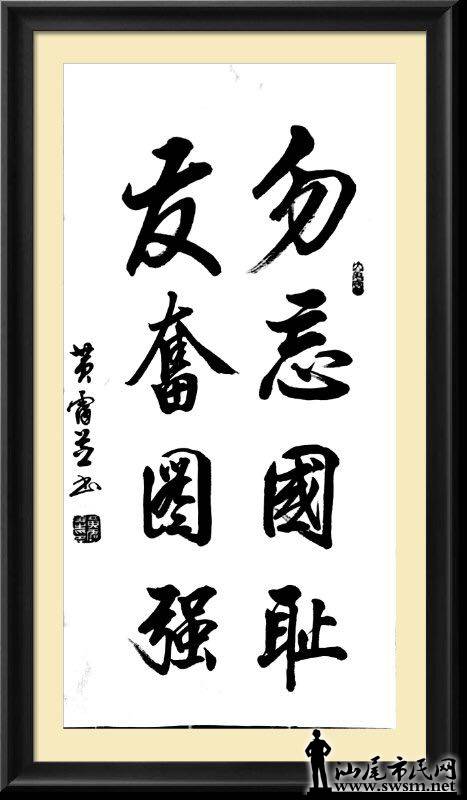 勿忘國耻
发奮图强
黄霄书
汕尾市民网
www.swsm.net